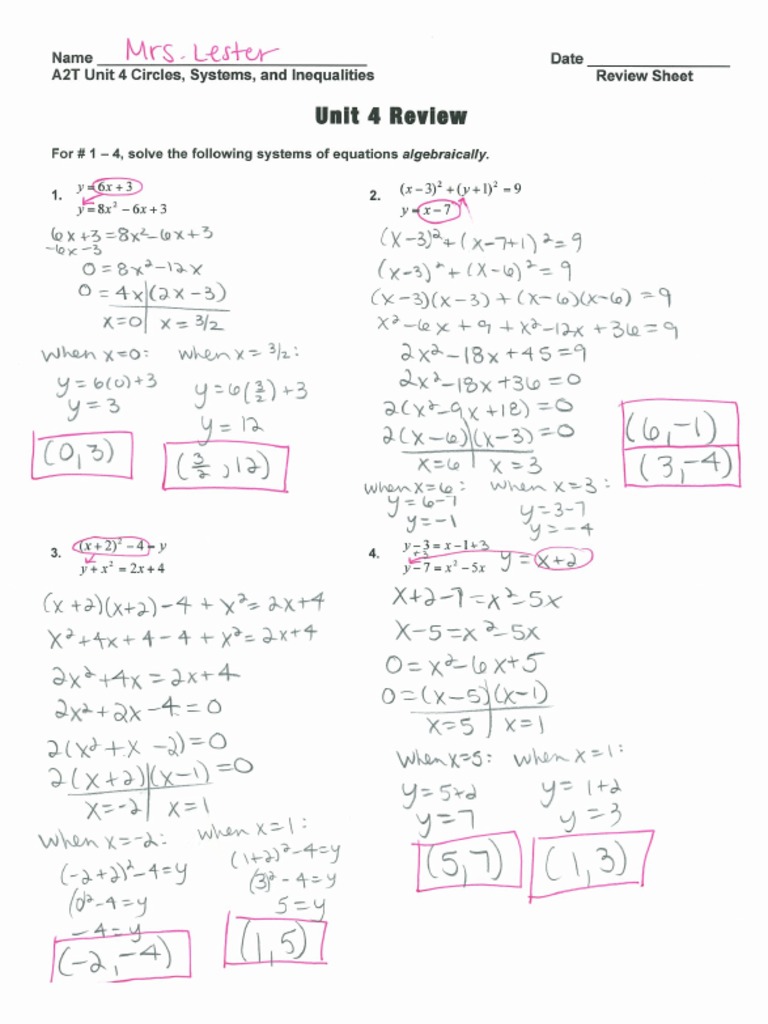 Name Mrs. Lester Date
A2T Unit 4 Circles, Systems, and Inequalities Review Sheet
Unit 4 Review
For # 1 – 4, solve the following systems of equations algebraically.
1. y = 6x + 3
y = 8x² − 6x + 3
6x + 3 = 8x² − 6x + 3
−6x −3
0 = 8x² − 12x
0 = 4x(2x − 3)
x = 0 x = 3/2
when x = 0: when x = 3/2:
y = 6(0) + 3 y = 6(3/2) + 3
y = 3 y = 12
(0, 3) (3/2, 12)
2. (x − 3)² + (y + 1)² = 9
y = x − 7
(x − 3)² + (x − 7 + 1)² = 9
(x − 3)² + (x − 6)² = 9
(x − 3)(x − 3) + (x − 6)(x − 6) = 9
x² − 6x + 9 + x² − 12x + 36 = 9
2x² − 18x + 45 = 9
2x² − 18x + 36 = 0
2(x² − 9x + 18) = 0
2(x − 6)(x − 3) = 0
x = 6 x = 3
when x = 6: when x = 3:
y = 6 − 7 y = 3 − 7
y = −1 y = −4
(6, −1)
(3, −4)
3. (x + 2)² − 4 = y
y + x² = 2x + 4
(x + 2)(x + 2) − 4 + x² = 2x + 4
x² + 4x + 4 − 4 + x² = 2x + 4
2x² + 4x = 2x + 4
2x² + 2x − 4 = 0
2(x² + x − 2) = 0
2(x + 2)(x − 1) = 0
x = −2 x = 1
when x = −2: when x = 1:
(−2 + 2)² − 4 = y (1 + 2)² − 4 = y
(0)² − 4 = y (3)² − 4 = y
−4 = y 5 = y
(−2, −4) (1, 5)
4. y − 3 = x − 1 + 3
+3 y = x + 2
y − 7 = x² − 5x
x + 2 − 7 = x² − 5x
x − 5 = x² − 5x
0 = x² − 6x + 5
0 = (x − 5)(x − 1)
x = 5 x = 1
when x = 5: when x = 1:
y = 5 + 2 y = 1 + 2
y = 7 y = 3
(5, 7) (1, 3)